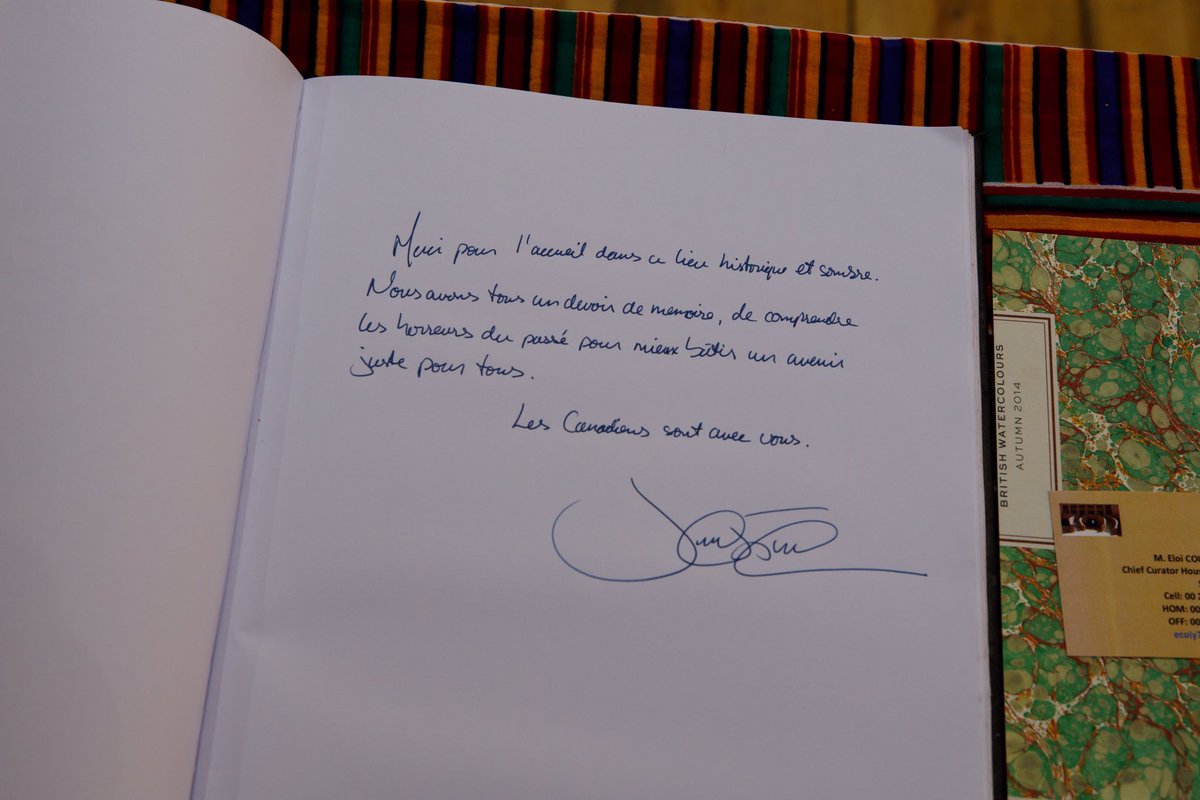 Merci pour l'accueil dans ce lieu historique et sombre.
Nous avons tous un devoir de memoire, de comprendre
les horreurs du passé pour mieux bâtir un avenir
juste pour tous.
Les Canadiens sont avec vous.
BRITISH WATERCOLOURS
AUTUMN 2014
M. Eloi COL
Chief Curator Hous
Cell: 00 2
HOM: 00
OFF: 00
ecoly7